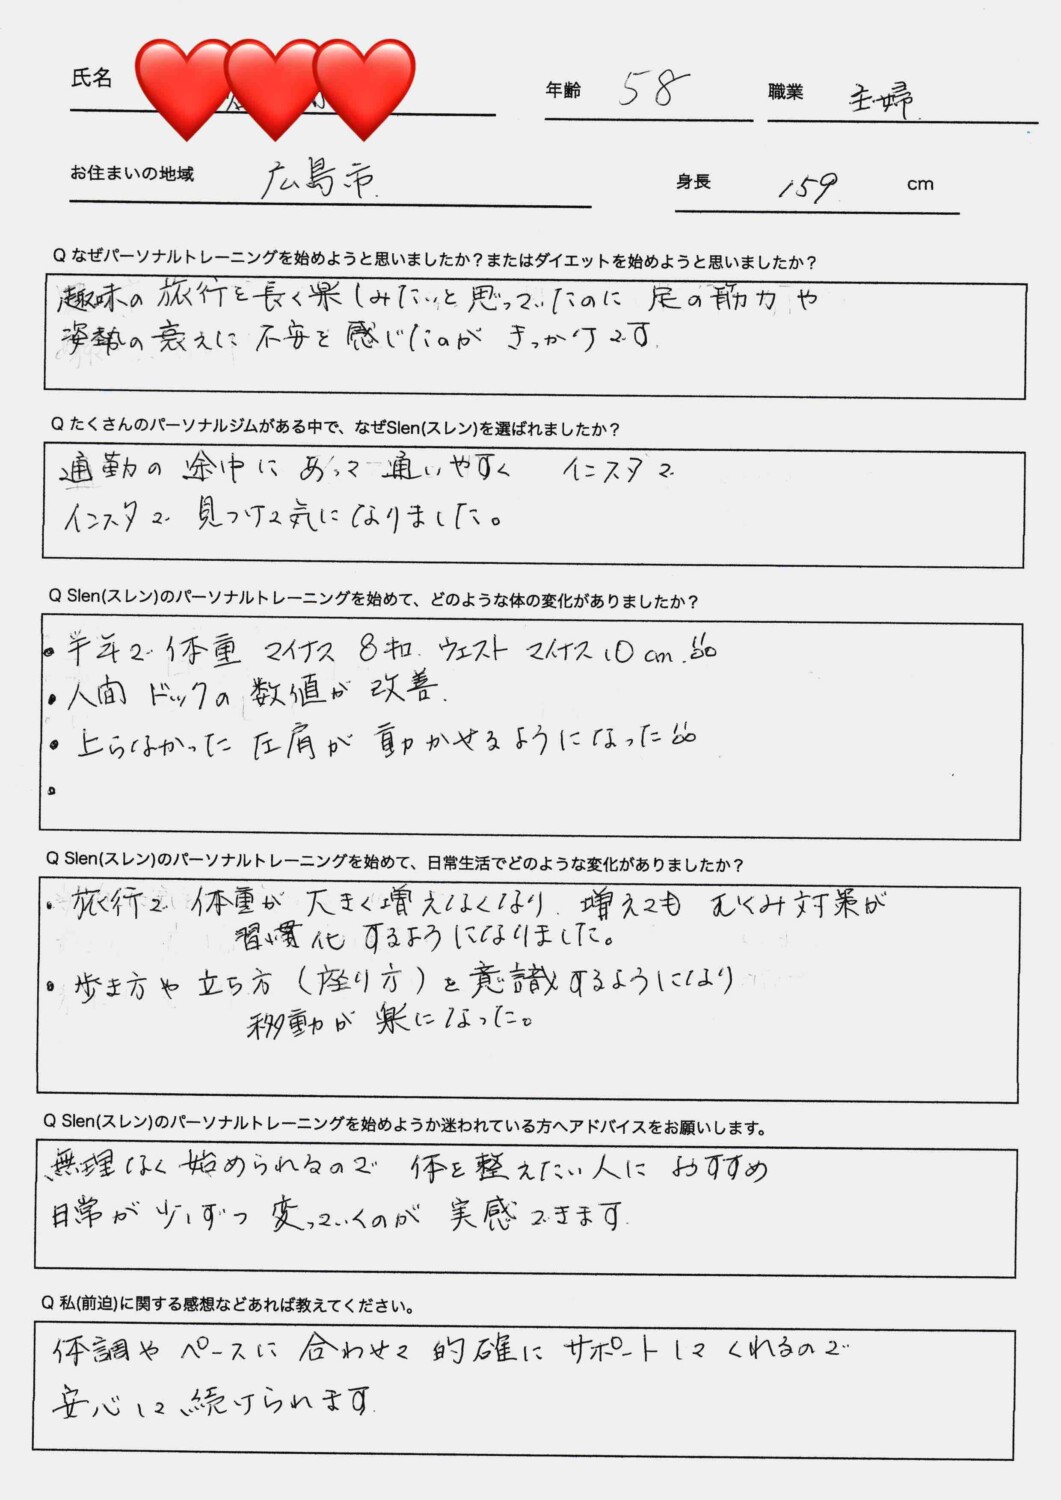 氏名
年齢 58 職業 主婦
お住まいの地域 広島市 身長 159 cm
Q なぜパーソナルトレーニングを始めようと思いましたか?またはダイエットを始めようと思いましたか?
趣味の旅行を長く楽しみたいと思っていたのに 足の筋力や
姿勢の衰えに 不安を感じたのが きっかけです
Q たくさんのパーソナルジムがある中で、なぜSlen(スレン)を選ばれましたか?
通勤の途中にあって通いやすく インスタで
インスタで 見つけて気になりました。
Q Slen(スレン)のパーソナルトレーニングを始めて、どのような体の変化がありましたか?
・半年で 体重 マイナス 8キロ. ウェスト マイナス 10cm.
・人間ドックの数値が 改善.
・上らなかった 左肩が 動かせるようになった
・
Q Slen(スレン)のパーソナルトレーニングを始めて、日常生活でどのような変化がありましたか?
・旅行で 体重が 大きく増えなくなり. 増えても むくみ対策が
習慣化するようになりました。
・歩き方や立ち方(座り方)を意識するようになり
移動が 楽になった。
Q Slen(スレン)のパーソナルトレーニングを始めようか迷われている方へアドバイスをお願いします。
無理なく始められるので 体を整えたい人に おすすめ
日常が少しずつ 変っていくのが 実感できます.
Q 私(前迫)に関する感想などあれば教えてください。
体調やペースに合わせて 的確に サポートしてくれるので
安心して続けられます.